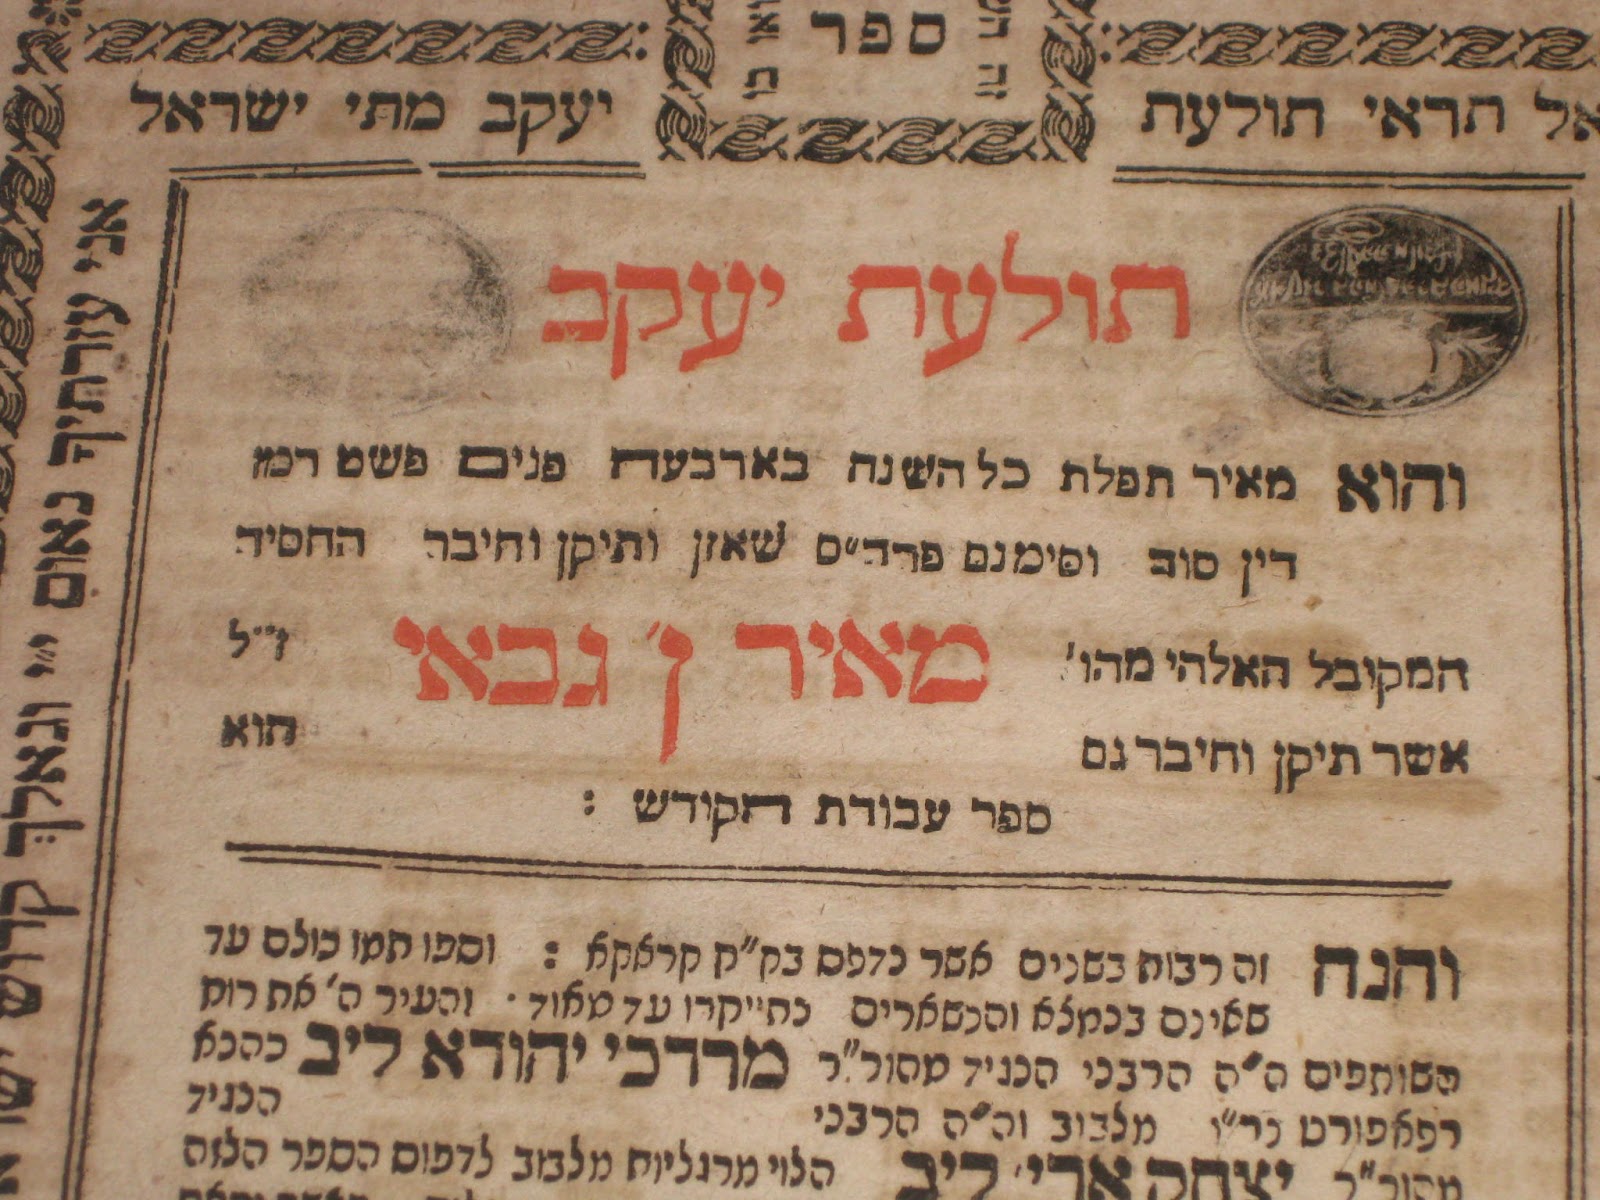 ספר
אל תראי תולעת
יעקב מתי ישראל
אני עזרתיך נאום יי וגואלך קדוש
תולעת יעקב
והוא מאיר תפלת כל השנה בארבעה פנים פשט רמז
דין סוד וסימנם פרד"ס שאזן ותיקן וחיבר החסיד
המקובל האלהי מהו' מאיר ן' גבאי ז"ל
אשר תיקן וחיבר גם הוא
ספר עבודת הקודש :
והנה זה רבות בשנים אשר נדפס בק"ק קראקא : וספו תמו כולם עד
שאינם בנמצא והנשארים נתייקרו עד מאוד . והעיר ה' את רוח
השותפים ה"ה הרבני הנגיד מהור"ר מרדכי יהודא ליב כהנא
רפאפורט נר"ו מלבוב וה"ה הרבני הנגיד
מהור"ר יצחק ארי' ליב הלוי מרגליות מלבוב לדפוס הספר הלזה